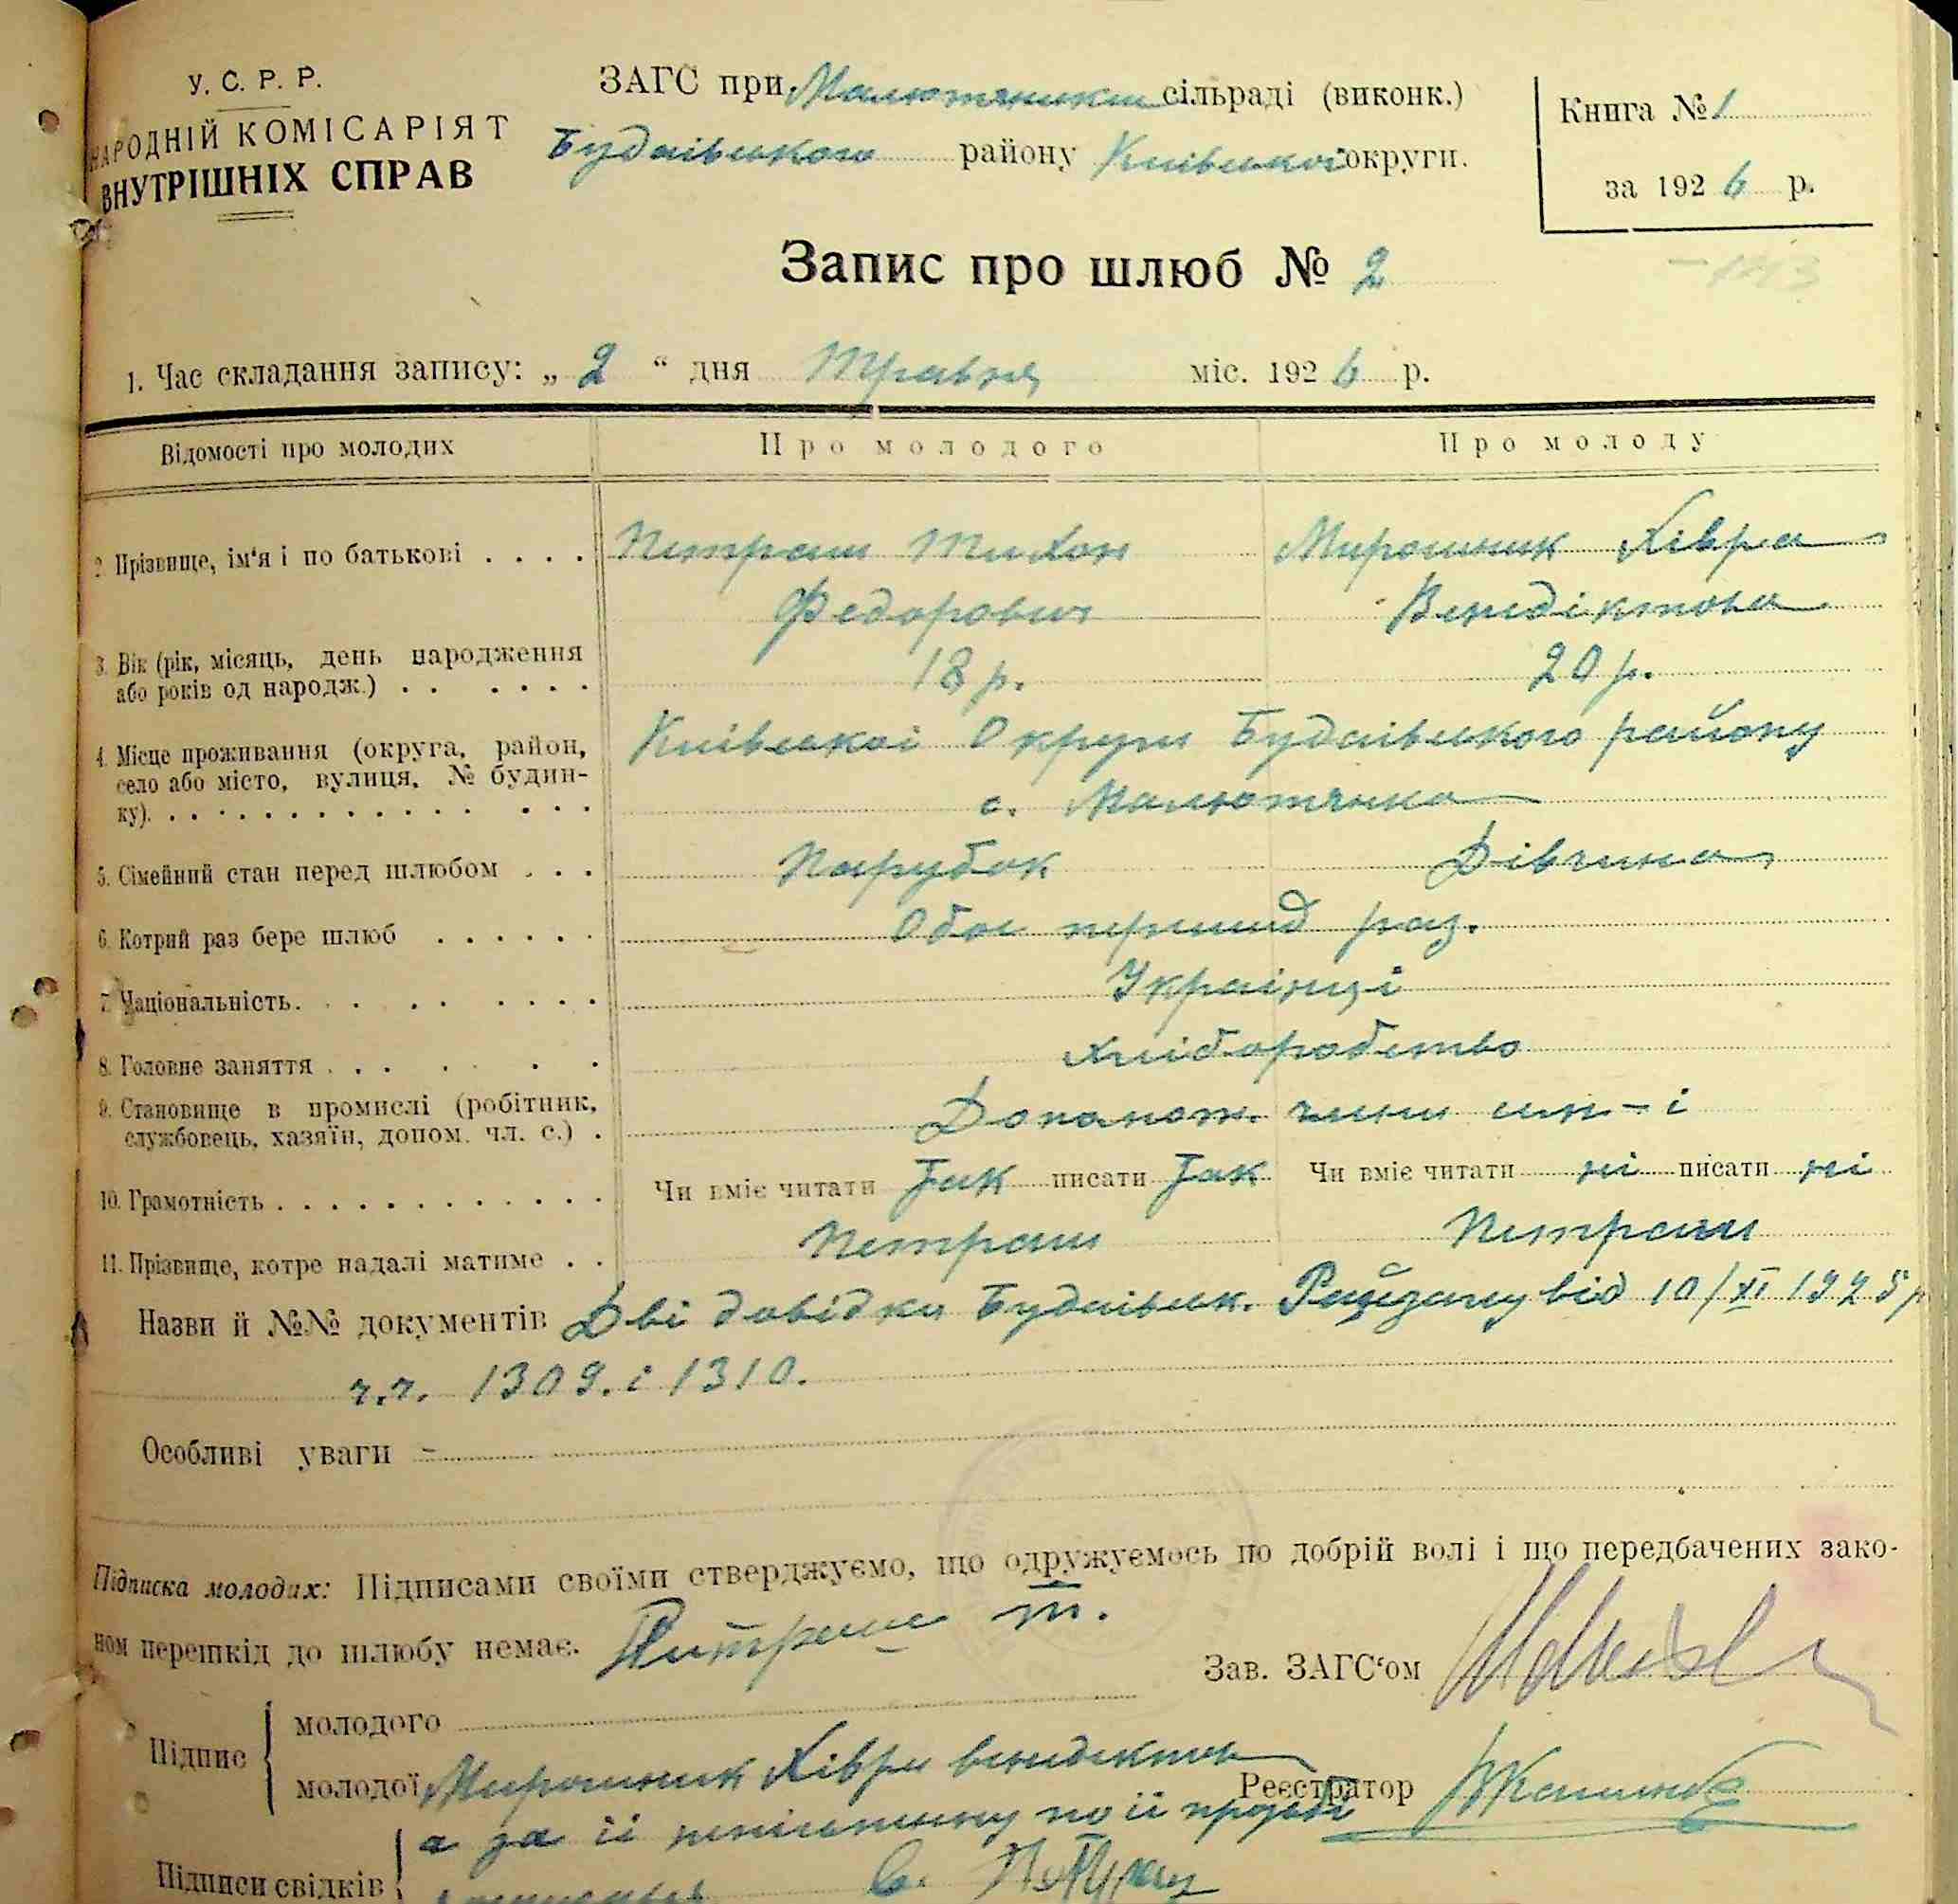 У. С. Р. Р.
НАРОДНІЙ КОМІСАРІЯТ
ВНУТРІШНІХ СПРАВ
ЗАГС при Малютянкш сільраді (виконк.)
Будаівського району Киівськоі округи.
Книга № 1
за 1926 р.
Запис про шлюб № 2
1. Час складання запису: „ 2 “ дня Травня міс. 1926 р.
Відомості про молодих Про молодого Про молоду
2. Прізвище, ім'я і по батькові . . . . Петраш Тихон Мирошник Хівра
Федорович Венедіктова
3. Вік (рік, місяць, день народження
або років од народж.) . . . . . . 18 р. 20 р.
4. Місце проживання (округа, район, Киівськоі Округи Будаівського району
село або місто, вулиця, № будин-
ку). . . . . . . . . . . . . . . с. Малютянка
5. Сімейний стан перед шлюбом . . . Парубок Дівчина
6. Котрий раз бере шлюб . . . . . . Обоє перший раз.
7. Національність. . . . . . . . . Українці
8. Головне заняття . . . . . . Хліборобство
9. Становище в промислі (робітник,
службовець, хазяїн, допом. чл. с.) . Допомож. члени
10. Грамотність . . . . . . . . . . . . Чи вміє читати Так писати Так Чи вміє читати ні писати ні
11. Прізвище, котре надалі матиме . . Петраш Петраш
Назви й №№ документів Дві довідки Будаівськ. Райзагсу від 10/XI 1925 р
ч.ч. 1309. і 1310.
Особливі уваги –
Підписка молодих: Підписами своїми стверджуємо, що одружуємось по добрій волі і що передбачених зако-
ном перешкід до шлюбу немає. Питраш Т.
Зав. ЗАГС'ом
Підпис
молодого
молодої Мирошник Хіври венедиктов
Реєстратор
а за іі неписьмену по іі прозьбі
Підписи свідків